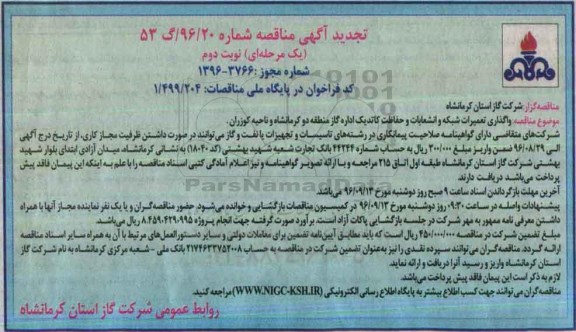 تجدید آگهی مناقصه شماره ۹۶/۲۰/گ ۵۳
(یک مرحله‌ای) نوبت دوم
شماره مجوز :۳۷۶۶-۱۳۹۶
کد فراخوان در پایگاه ملی مناقصات: ۱/۴۹۹/۲۰۴
مناقصه‌گزار: شرکت گاز استان کرمانشاه
موضوع مناقصه: واگذاری تعمیرات شبکه و انشعابات و حفاظت کاتدیک اداره گاز منطقه دو کرمانشاه و ناحیه کوزران.
شرکت‌های متقاضی دارای گواهینامه صلاحیت پیمانکاری در رشته‌های تاسیسات و تجهیزات یا نفت و گاز می‌توانند در صورت داشتن ظرفیت مجاز کاری، از تاریخ درج آگهی
الی ۹۶/۰۸/۲۹ ضمن واریز مبلغ ۳۰۰/۰۰۰ ریال به حساب شماره ۴۴۲۴۴ بانک تجارت شعبه شهید بهشتی (کد ۱۸۰۴۰) به نشانی کرمانشاه، میدان آزادی ابتدای بلوار شهید
بهشتی شرکت گاز استان کرمانشاه طبقه اول اتاق ۲۱۵ مراجعه و با ارائه تصویر گواهینامه و نیز اعلام آمادگی کتبی اسناد مناقصه را با علم به اینکه این پیمان فاقد پیش
پرداخت می‌باشد دریافت دارند.
آخرین مهلت بازگرداندن اسناد ساعت ۹ صبح روز دوشنبه مورخ ۹۶/۰۹/۱۳ می‌باشد.
پیشنهادات واصله در ساعت ۰۹:۳۰ روز دوشنبه مورخ ۹۶/۰۹/۱۳ در کمیسیون مناقصات بازگشایی و خوانده می‌شود. حضور مناقصه‌گران و یا یک نفر نماینده مجاز آنها با همراه
داشتن معرفی نامه ممهور به مهر شرکت در جلسه بازگشایی پاکات آزاد است. برآورد صورت گرفته جهت انجام پروژه ۸.۴۵۹.۴۲۹.۹۹۵ ریال می‌باشد.
مبلغ تضمین شرکت در مناقصه ۴۵۰/۰۰۰/۰۰۰ ریال است که باید مطابق آیین‌نامه تضمین برای معاملات دولتی و سایر دستورالعمل‌های مرتبط با آن به همراه سایر اسناد مناقصه
ارائه گردد. مناقصه‌گران می‌توانند سپرده نقدی را نیز به‌عنوان تضمین شرکت در مناقصه به حساب ۲۱۷۴۶۳۳۷۵۲۰۰۸ بانک ملی - شعبه مرکزی کرمانشاه به نام شرکت گاز
استان کرمانشاه واریز و رسید آنرا دریافت و ارائه نماید.
لازم به ذکر است این پیمان فاقد پیش پرداخت می‌باشد.
مناقصه‌گران می‌توانند جهت کسب اطلاع بیشتر به پایگاه اطلاع رسانی الکترونیکی (WWW.NIGC-KSH.IR) مراجعه کنید.
روابط عمومی شرکت گاز استان کرمانشاه
ParsNamadData